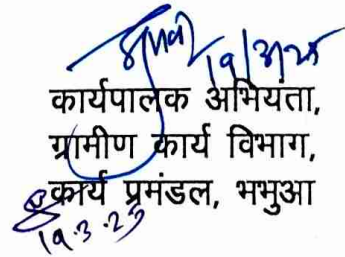 19/3/25
कार्यपालक अभियंता,
ग्रामीण कार्य विभाग,
कार्य प्रमंडल, भभुआ
19.3.25